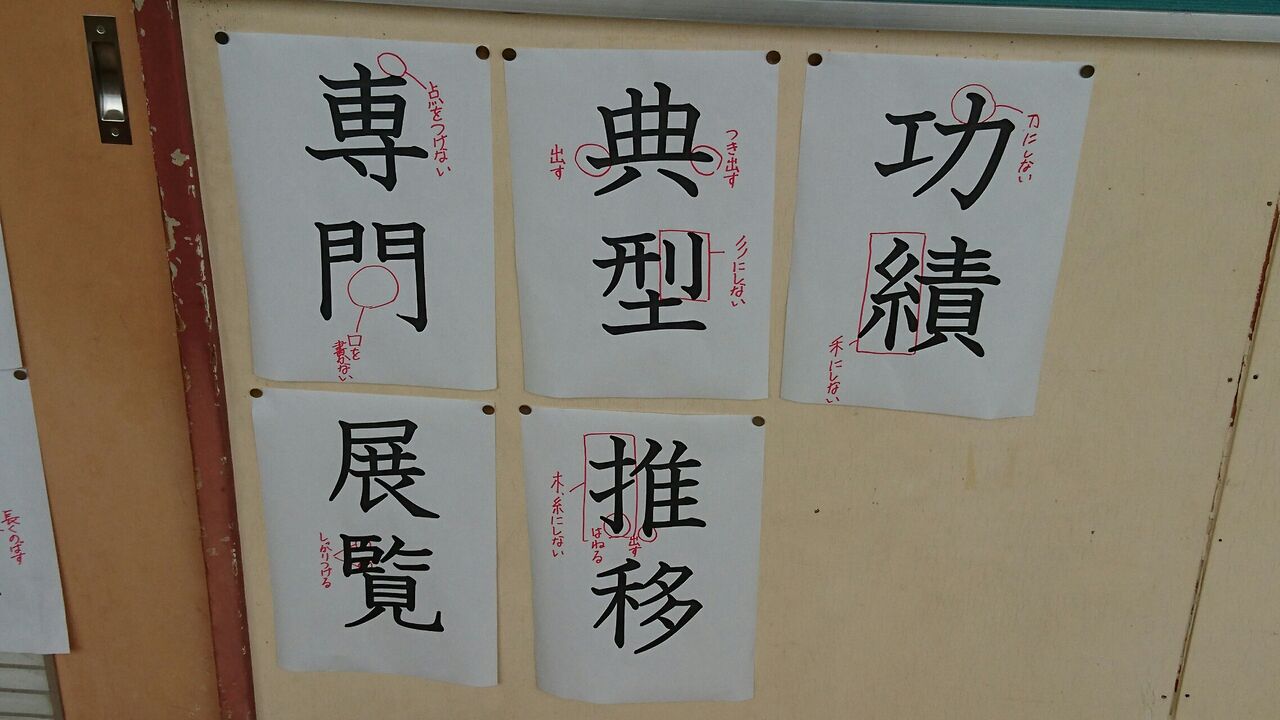 専門
点をつけない
口を
書かない
典型
出す
つき出す
ノノにしない
功績
刀にしない
禾にしない
展覧
しっかりつける
推移
木、糸にしない
はねる
出す
長くのばす